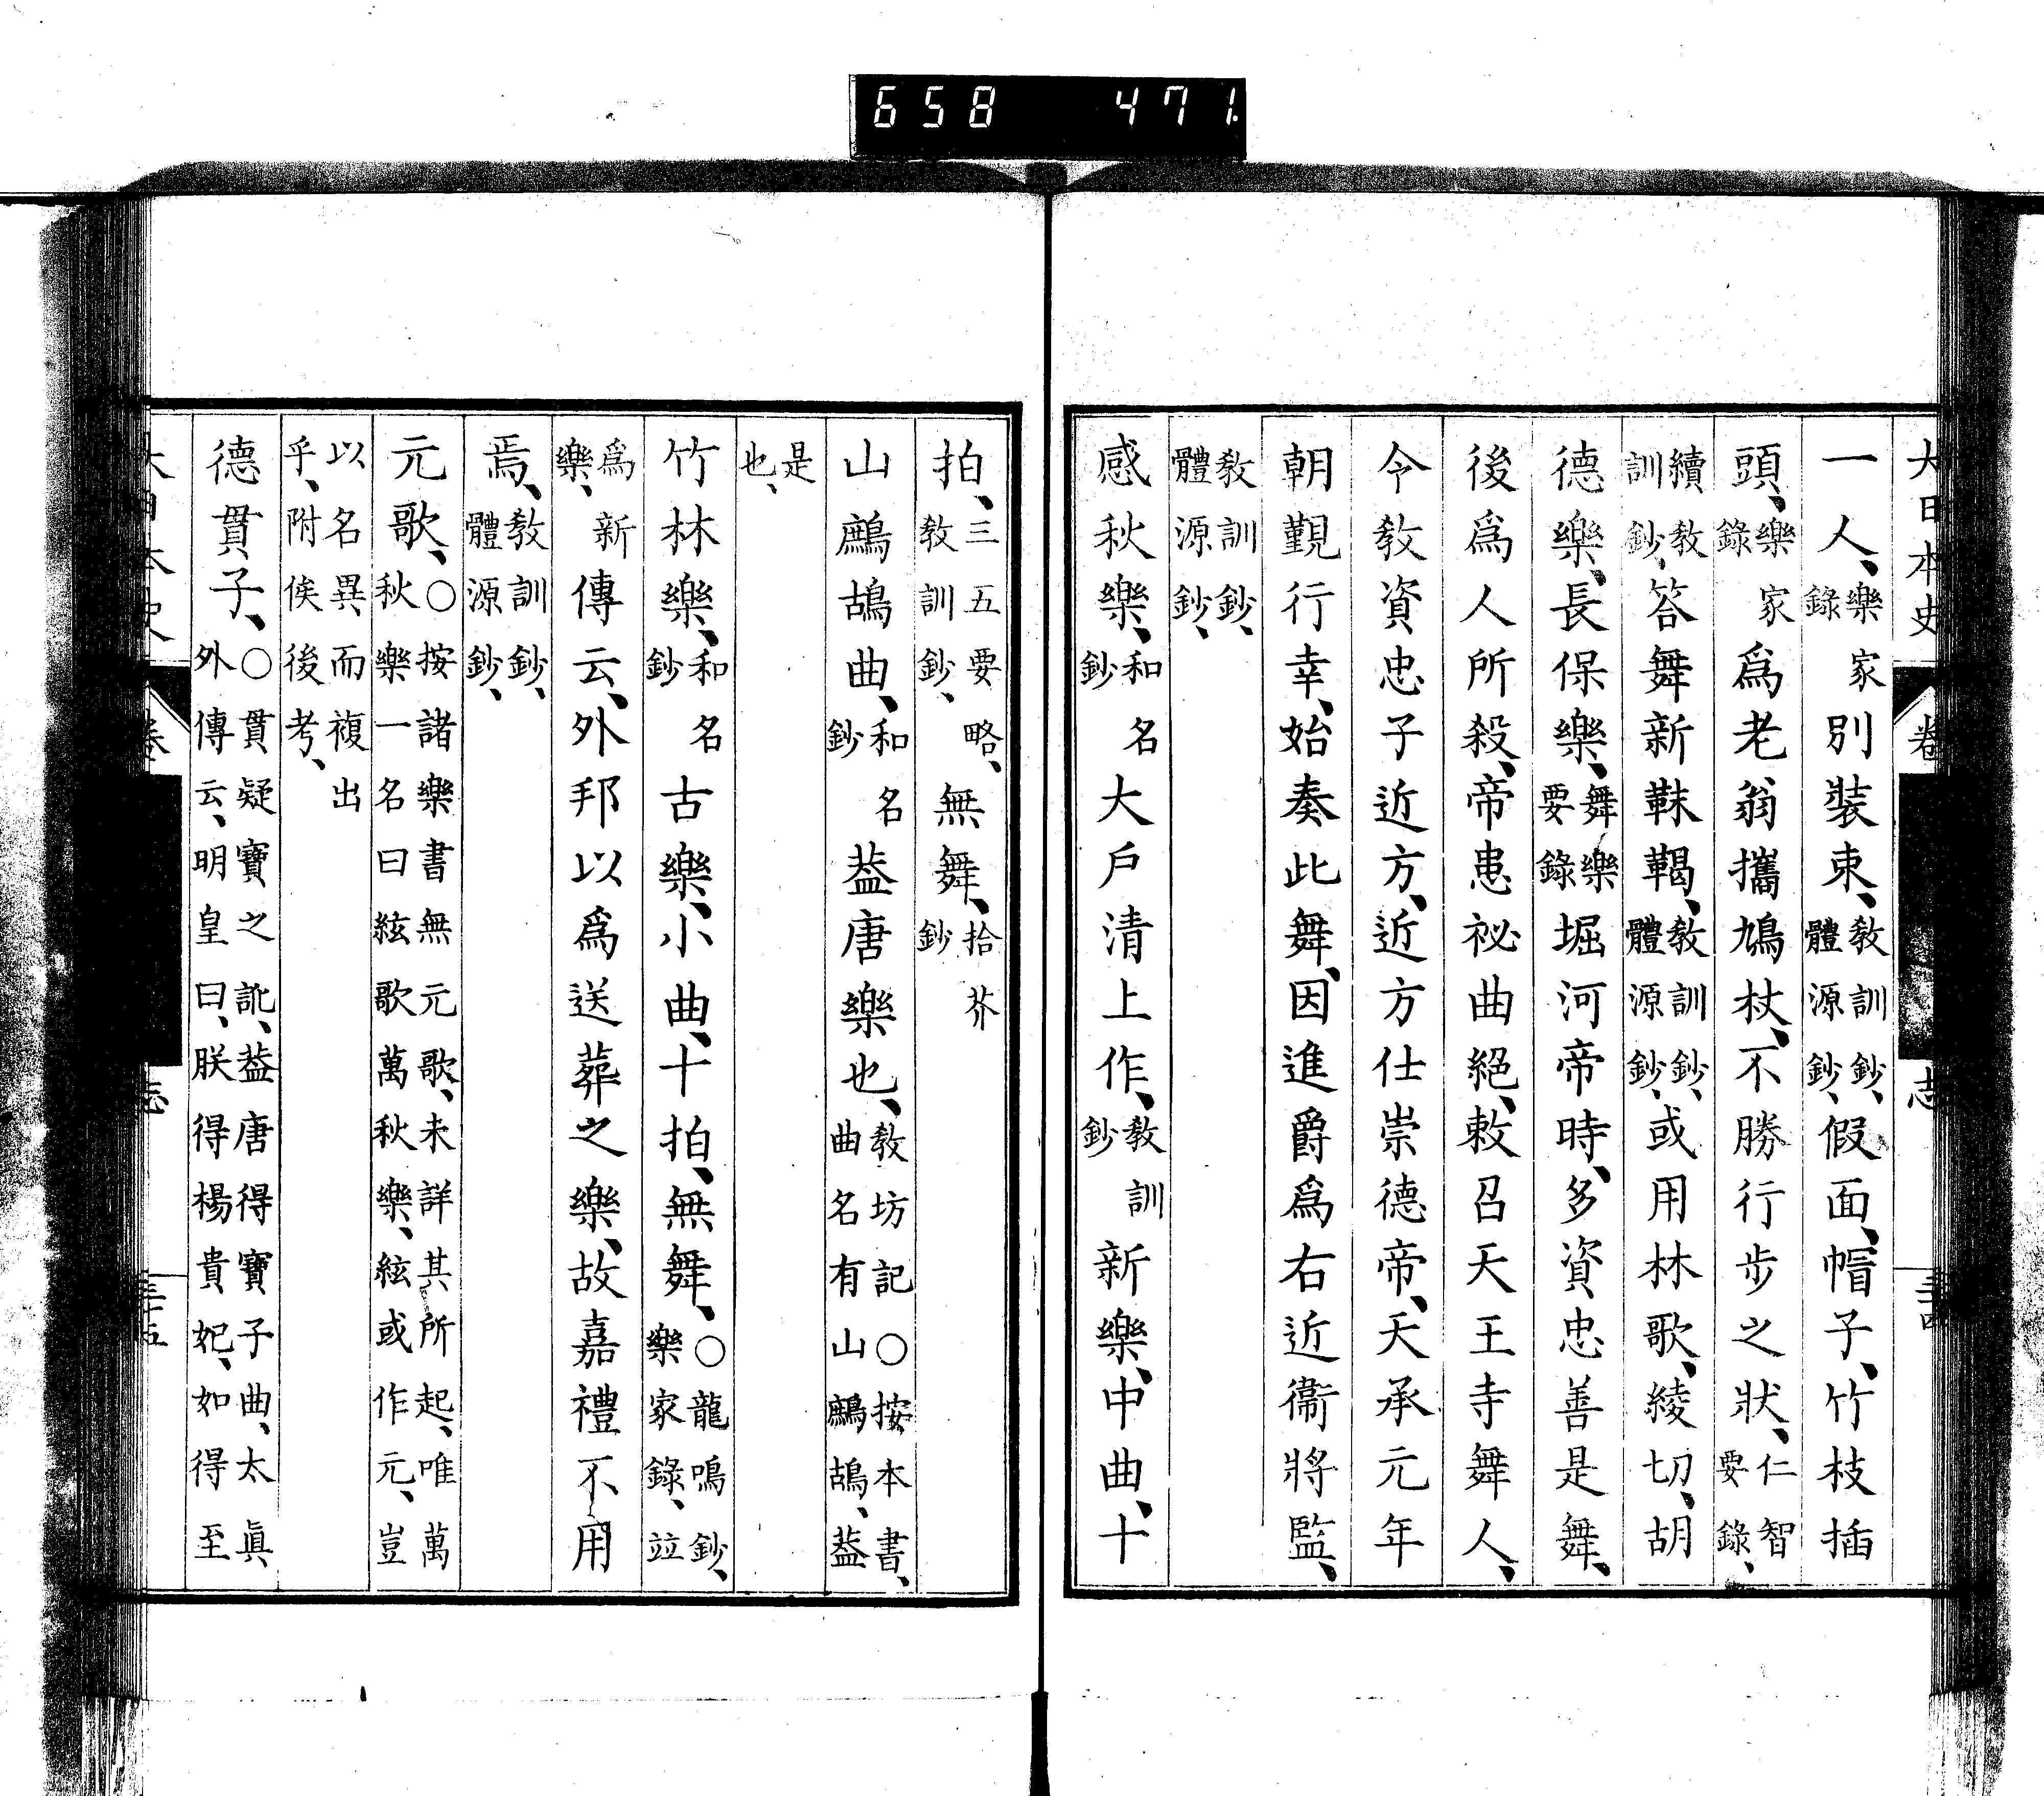 658 471
大日本史 卷 志 三十四
一人、樂家錄別裝束、教訓鈔、體源鈔、假面、帽子、竹枝插
頭、樂家錄爲老翁攜鳩杖、不勝行步之狀、仁智要錄、
續教訓鈔、答舞新靺鞨、教訓鈔、體源鈔、或用林歌、綾切、胡
德樂、長保樂、舞樂要錄堀河帝時、多資忠善是舞、
後爲人所殺、帝患祕曲絕、敕召天王寺舞人、
令教資忠子近方、近方仕崇德帝、天承元年
朝覲行幸、始奏此舞、因進爵爲右近衞將監、
教訓鈔、體源鈔、
感秋樂、和名鈔大戶清上作、教訓鈔新樂、中曲、十
拍、三五要略、教訓鈔、無舞、拾芥鈔
山鷓鴣曲、和名鈔蓋唐樂也、教坊記○按本書、曲名有山鷓鴣、蓋
是也、
竹林樂、和名鈔古樂、小曲、十拍、無舞、○龍鳴鈔、樂家錄、竝
爲新樂、傳云、外邦以爲送葬之樂、故嘉禮不用
焉、教訓鈔、體源鈔、
元歌、○按諸樂書無元歌、未詳其所起、唯萬秋樂一名曰絃歌萬秋樂、絃或作元、豈
以名異、而複出乎、附俟後考、
德貫子、○貫疑寶之訛、蓋唐得寶子曲、太眞外傳云、明皇曰、朕得楊貴妃、如得至
大日本史 卷 志 三十五